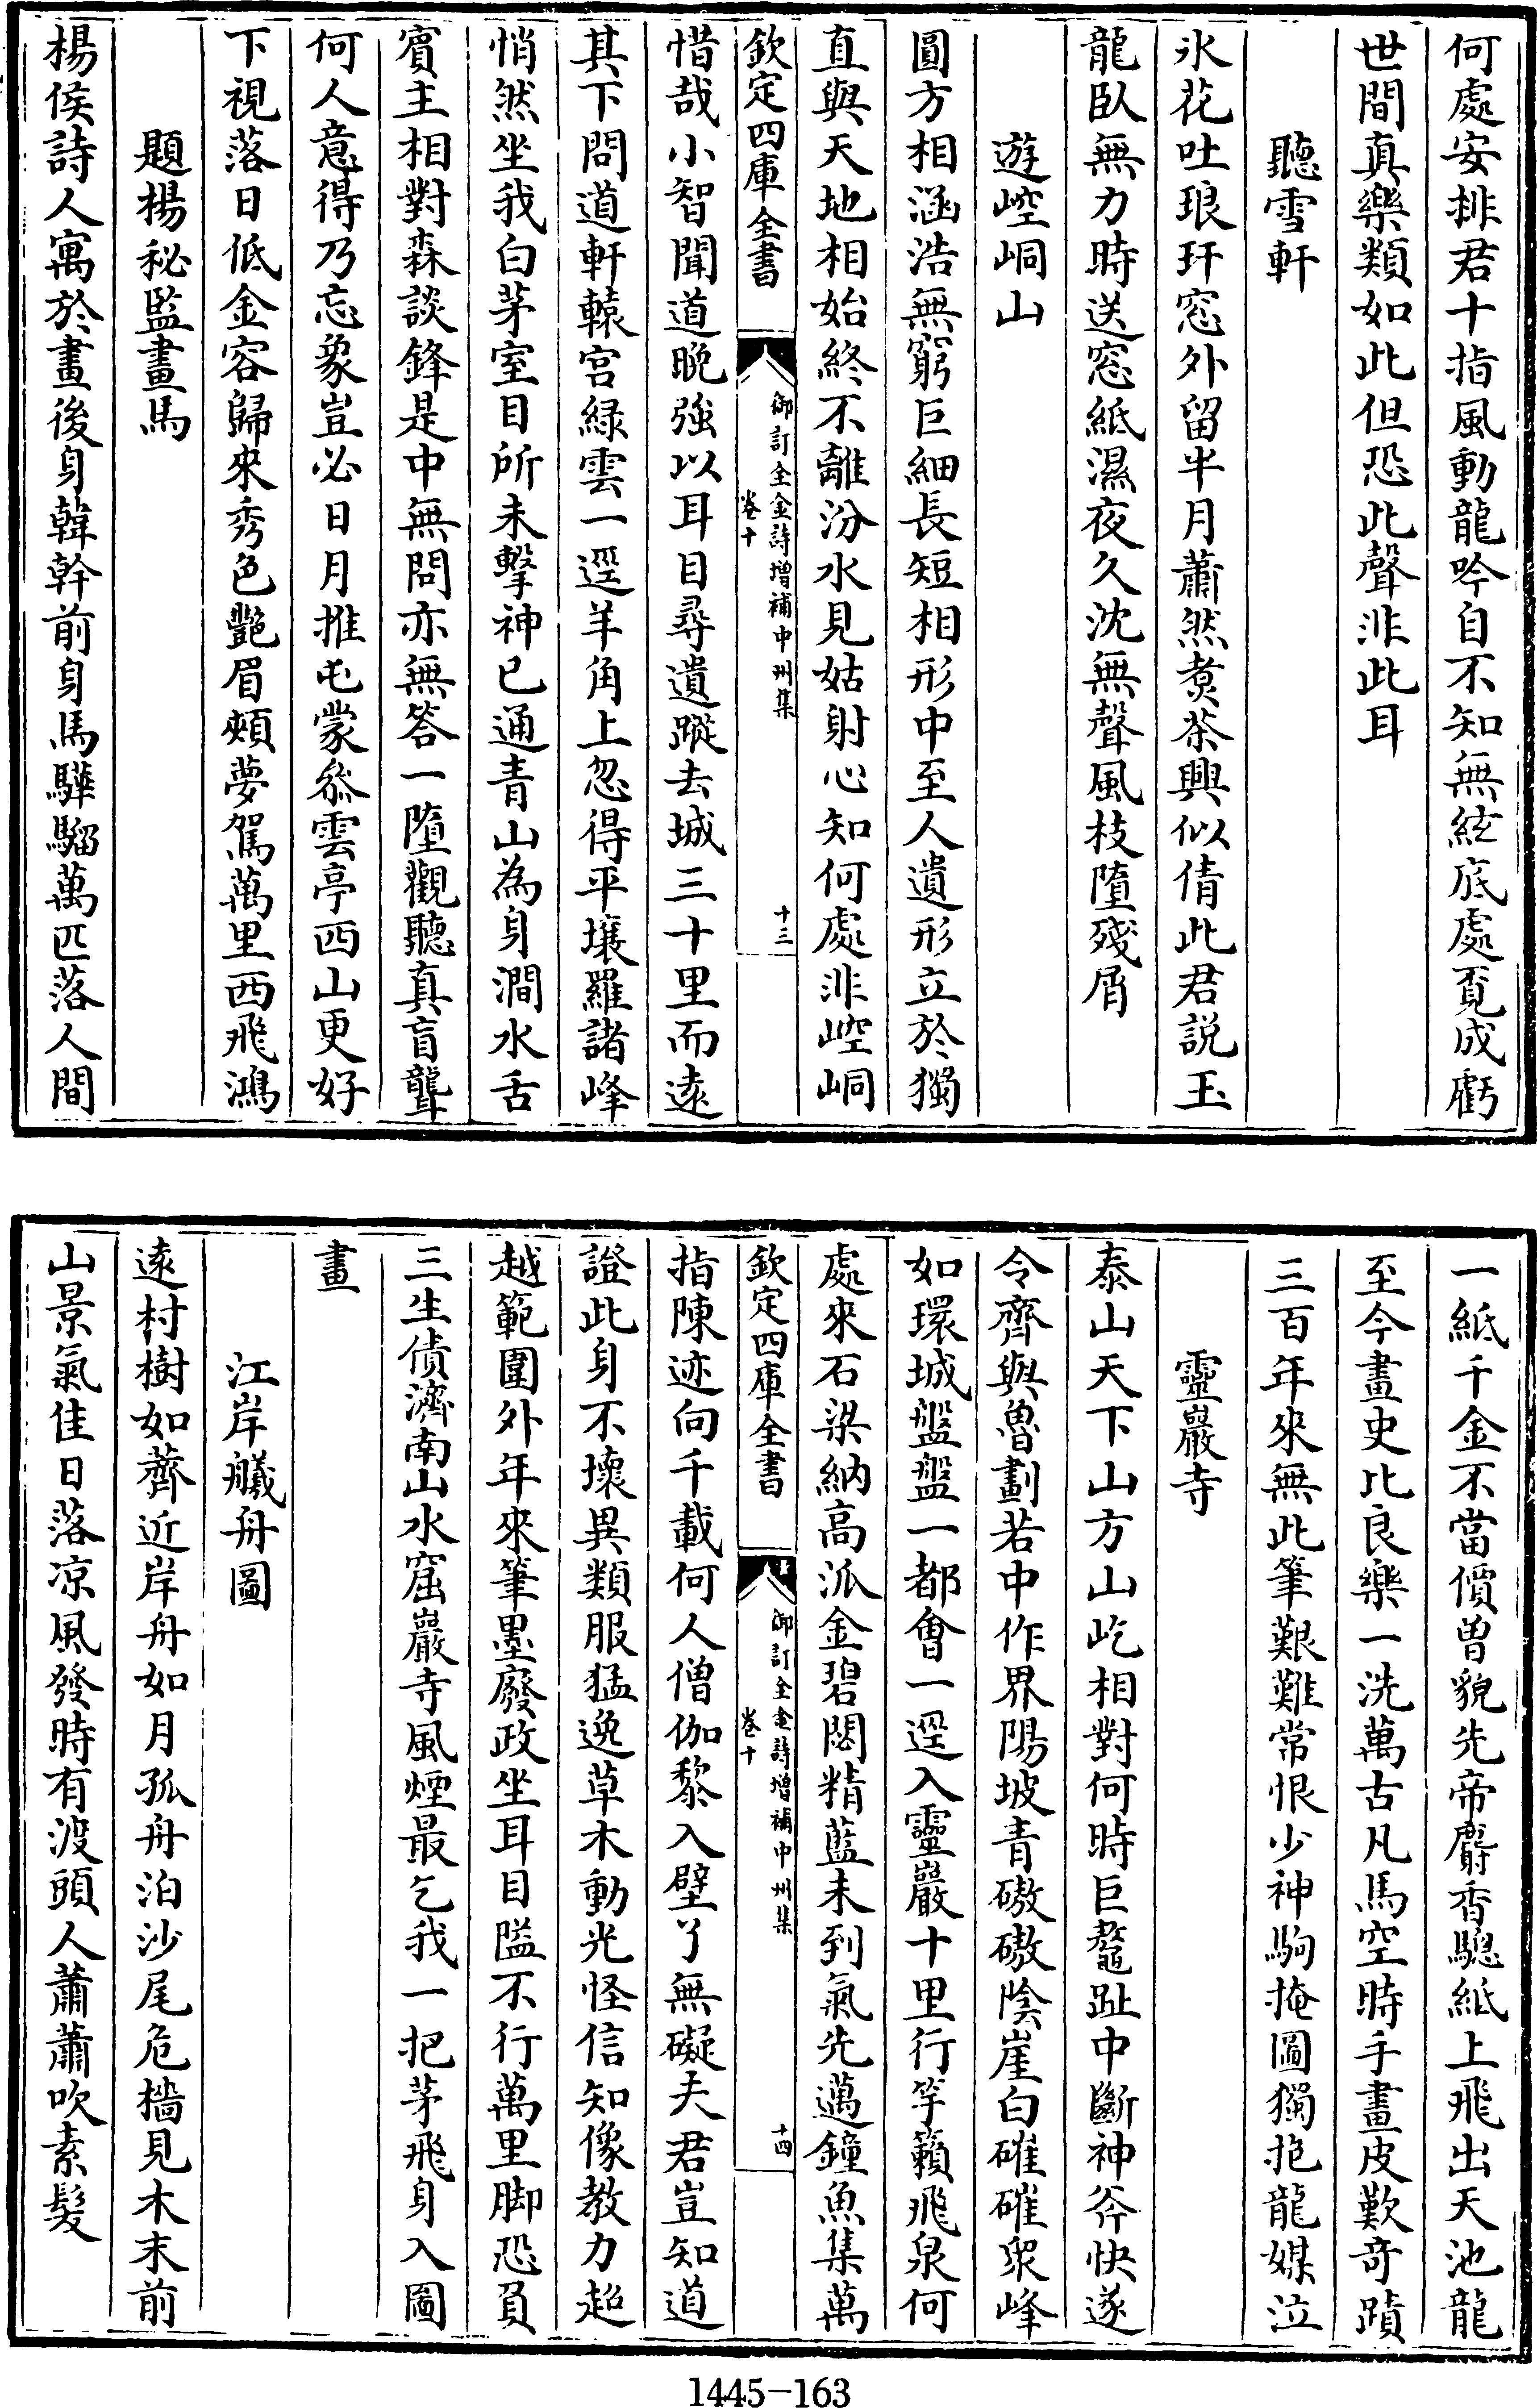 何處安排君十指風動龍吟自不知無絃底處覓成虧
世間真樂類如此但恐此聲非此耳
聽雪軒
氷花吐琅玕窓外留半月蕭然煑茶興似倩此君説玉
龍臥無力時送窓紙濕夜久沈無聲風枝墮殘屑
遊崆峒山
圓方相涵浩無窮巨細長短相形中至人遺形立於獨
直與天地相始終不離汾水見姑射心知何處非崆峒
欽定四庫全書
御訂全金詩增補中州集
卷十
十三
惜哉小智聞道晚強以耳目尋遺蹤去城三十里而逺
其下問道軒轅宫緑雲一逕羊角上忽得平壤羅諸峰
悄然坐我白茅室目所未擊神已通青山為身澗水舌
賓主相對森談鋒是中無問亦無答一墮觀聽真盲聾
何人意得乃忘象豈必日月推屯蒙叅雲亭西山更好
下視落日低金容歸來秀色艷眉頰夢駕萬里西飛鴻
題楊秘監畫馬
楊侯詩人寓於畫後身韓幹前身馬驊騮萬匹落人間
一紙千金不當價曽貌先帝麝香驄紙上飛出天池龍
至今畫史比良樂一洗萬古凡馬空時手畫皮歎竒蹟
三百年來無此筆艱難常恨少神駒掩圖獨抱龍媒泣
靈巖寺
泰山天下山方山屹相對何時巨鼇趾中斷神斧快遂
令齊與魯劃若中作界陽坡青磝磝陰崖白磪磪衆峰
如環城盤盤一都會一逕入靈巖十里行竽籟飛泉何
處來石梁納高派金碧閟精藍未到氣先邁鐘魚集萬
欽定四庫全書
御訂全金詩增補中州集
卷十
十四
指陳迹向千載何人僧伽黎入壁了無礙夫君豈知道
證此身不壞異類服猛逸草木動光怪信知像教力超
越範圍外年來筆墨廢政坐耳目隘不行萬里脚恐負
三生債濟南山水窟巖寺風煙最乞我一把茅飛身入圖
畫
江岸艤舟圖
逺村樹如薺近岸舟如月孤舟泊沙尾危檣見木末前
山景氣佳日落凉風發時有渡頭人蕭蕭吹素髮
1445-163